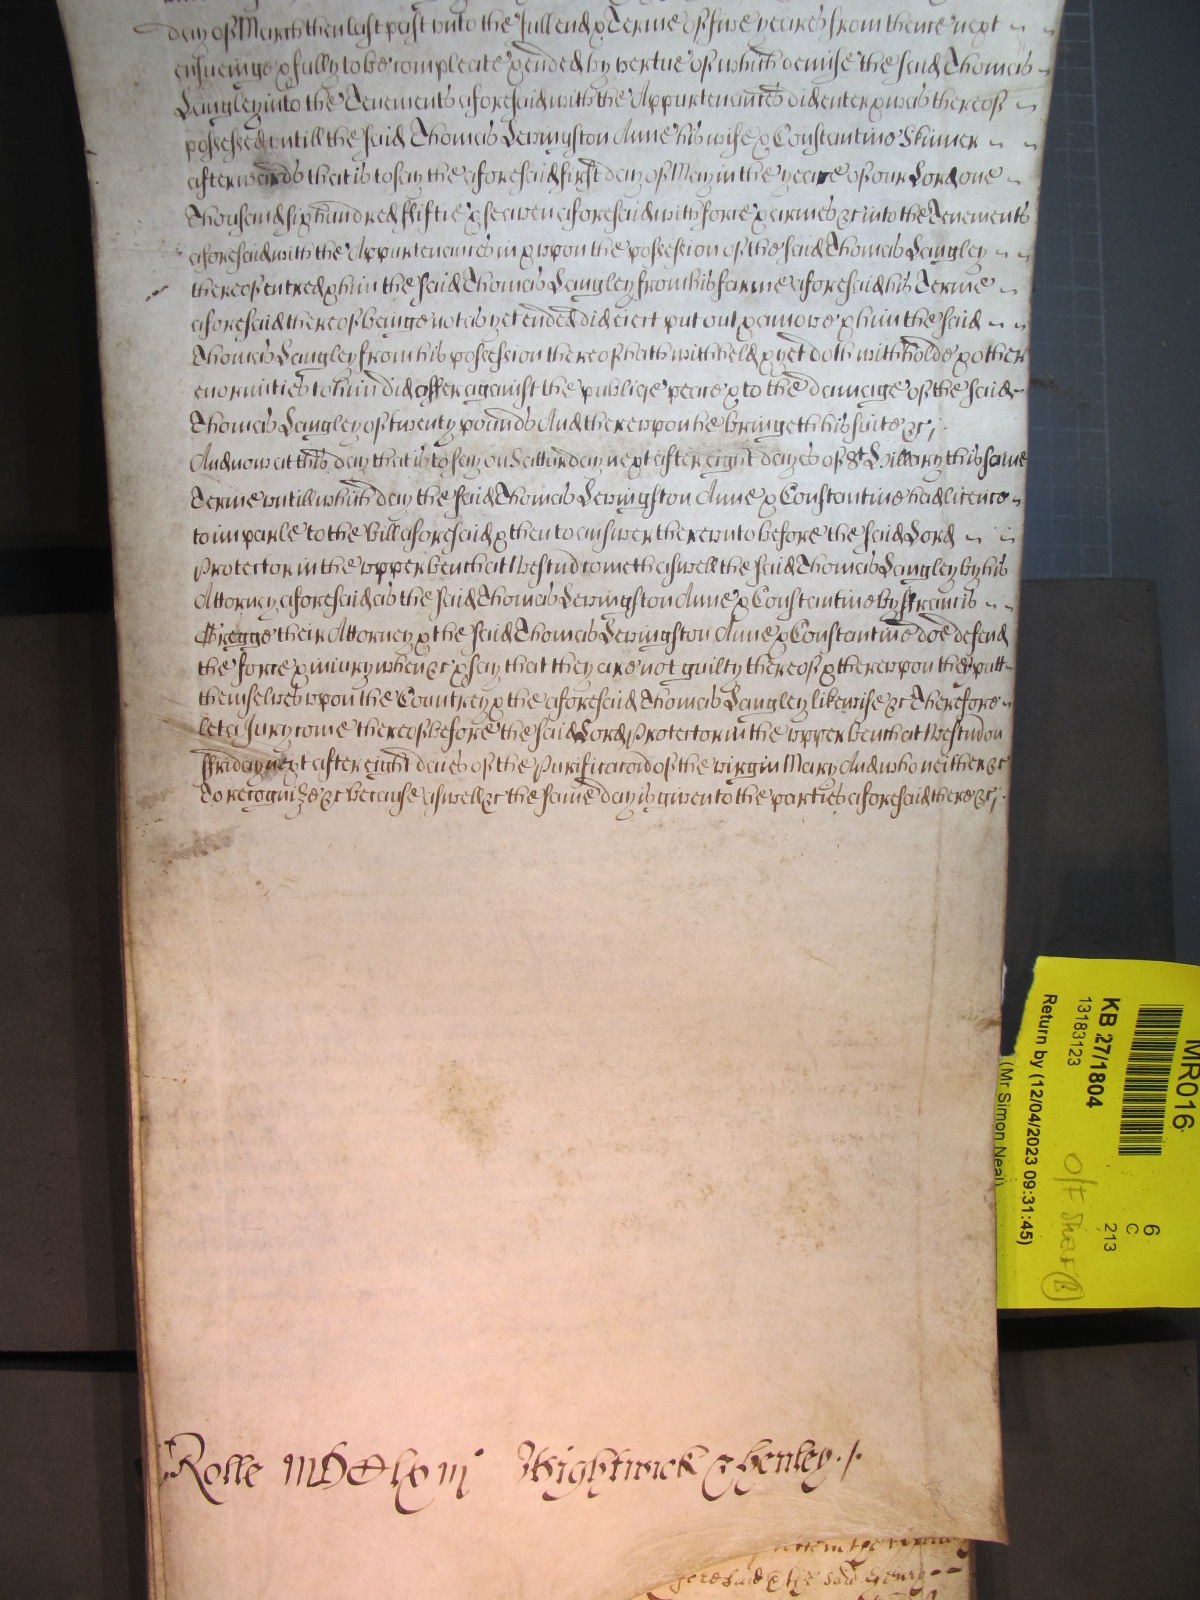 day of March then last past unto the full end & Terme of five yeares from thence next
ensueinge & fully to be compleate & ended by vertue of which demise the said Thomas
Langley into the Tenements aforesaid with the Appurtenances did enter & was thereof
possessed untill the said Thomas Levingston Anne his wife & Constantine Skinner
afterwards that is to say the aforesaid first day of May in the yeare of our Lord one
Thousand six hundred ffiftie & seaven aforesaid with force & armes &c into the Tenements
aforesaid with the Appurtenances in & upon the possession of the said Thomas Langley
thereof entred & him the said Thomas Langley from his farme aforesaid his Terme
aforesaid thereof beinge not as yet ended did eiect put out & amove & him the said
Thomas Langley from his possession thereof hath withheld & yet doth withholde & other
enormities to him did offer against the publiqe peace & to the damage of the said
Thomas Langley of twenty pounds And thereupon he bringeth his suite &c;
And now at this day that is to say on Satturday next after eight dayes of St Hillary this same
Terme untill which day the said Thomas Levingston Anne & Constantine had licence
to imparle to the Bill aforesaid & then to answer thereunto before the said Lord
Protector in the upper bench at Westm come th aswell the said Thomas Langley by his
Attorney aforesaid as the said Thomas Levingston Anne & Constantine by ffrancis
ffregge their Attorney & the said Thomas Levingston Anne & Constantine doe defend
the force & iniury when &c & say that they are not guilty thereof & thereupon they putt
themselves upon the Countrey & the aforesaid Thomas Langley likewise &c Therefore
let a Jury come thereof before the said Lord Protector in the upper bench at Westm on
ffriday next after eight daies of the Purificacon of the virgin Mary And who neither &c
To recognize &c because aswell &c the same day is given to the parties aforesaid there &c;
Rolle MDClxiij Wightwick & henley
foresaid & the said Henry
MR016
KB 27/1804
13183123
Return by (12/04/2023 09:31:45)
(Mr Simon Neal)
6
C
213